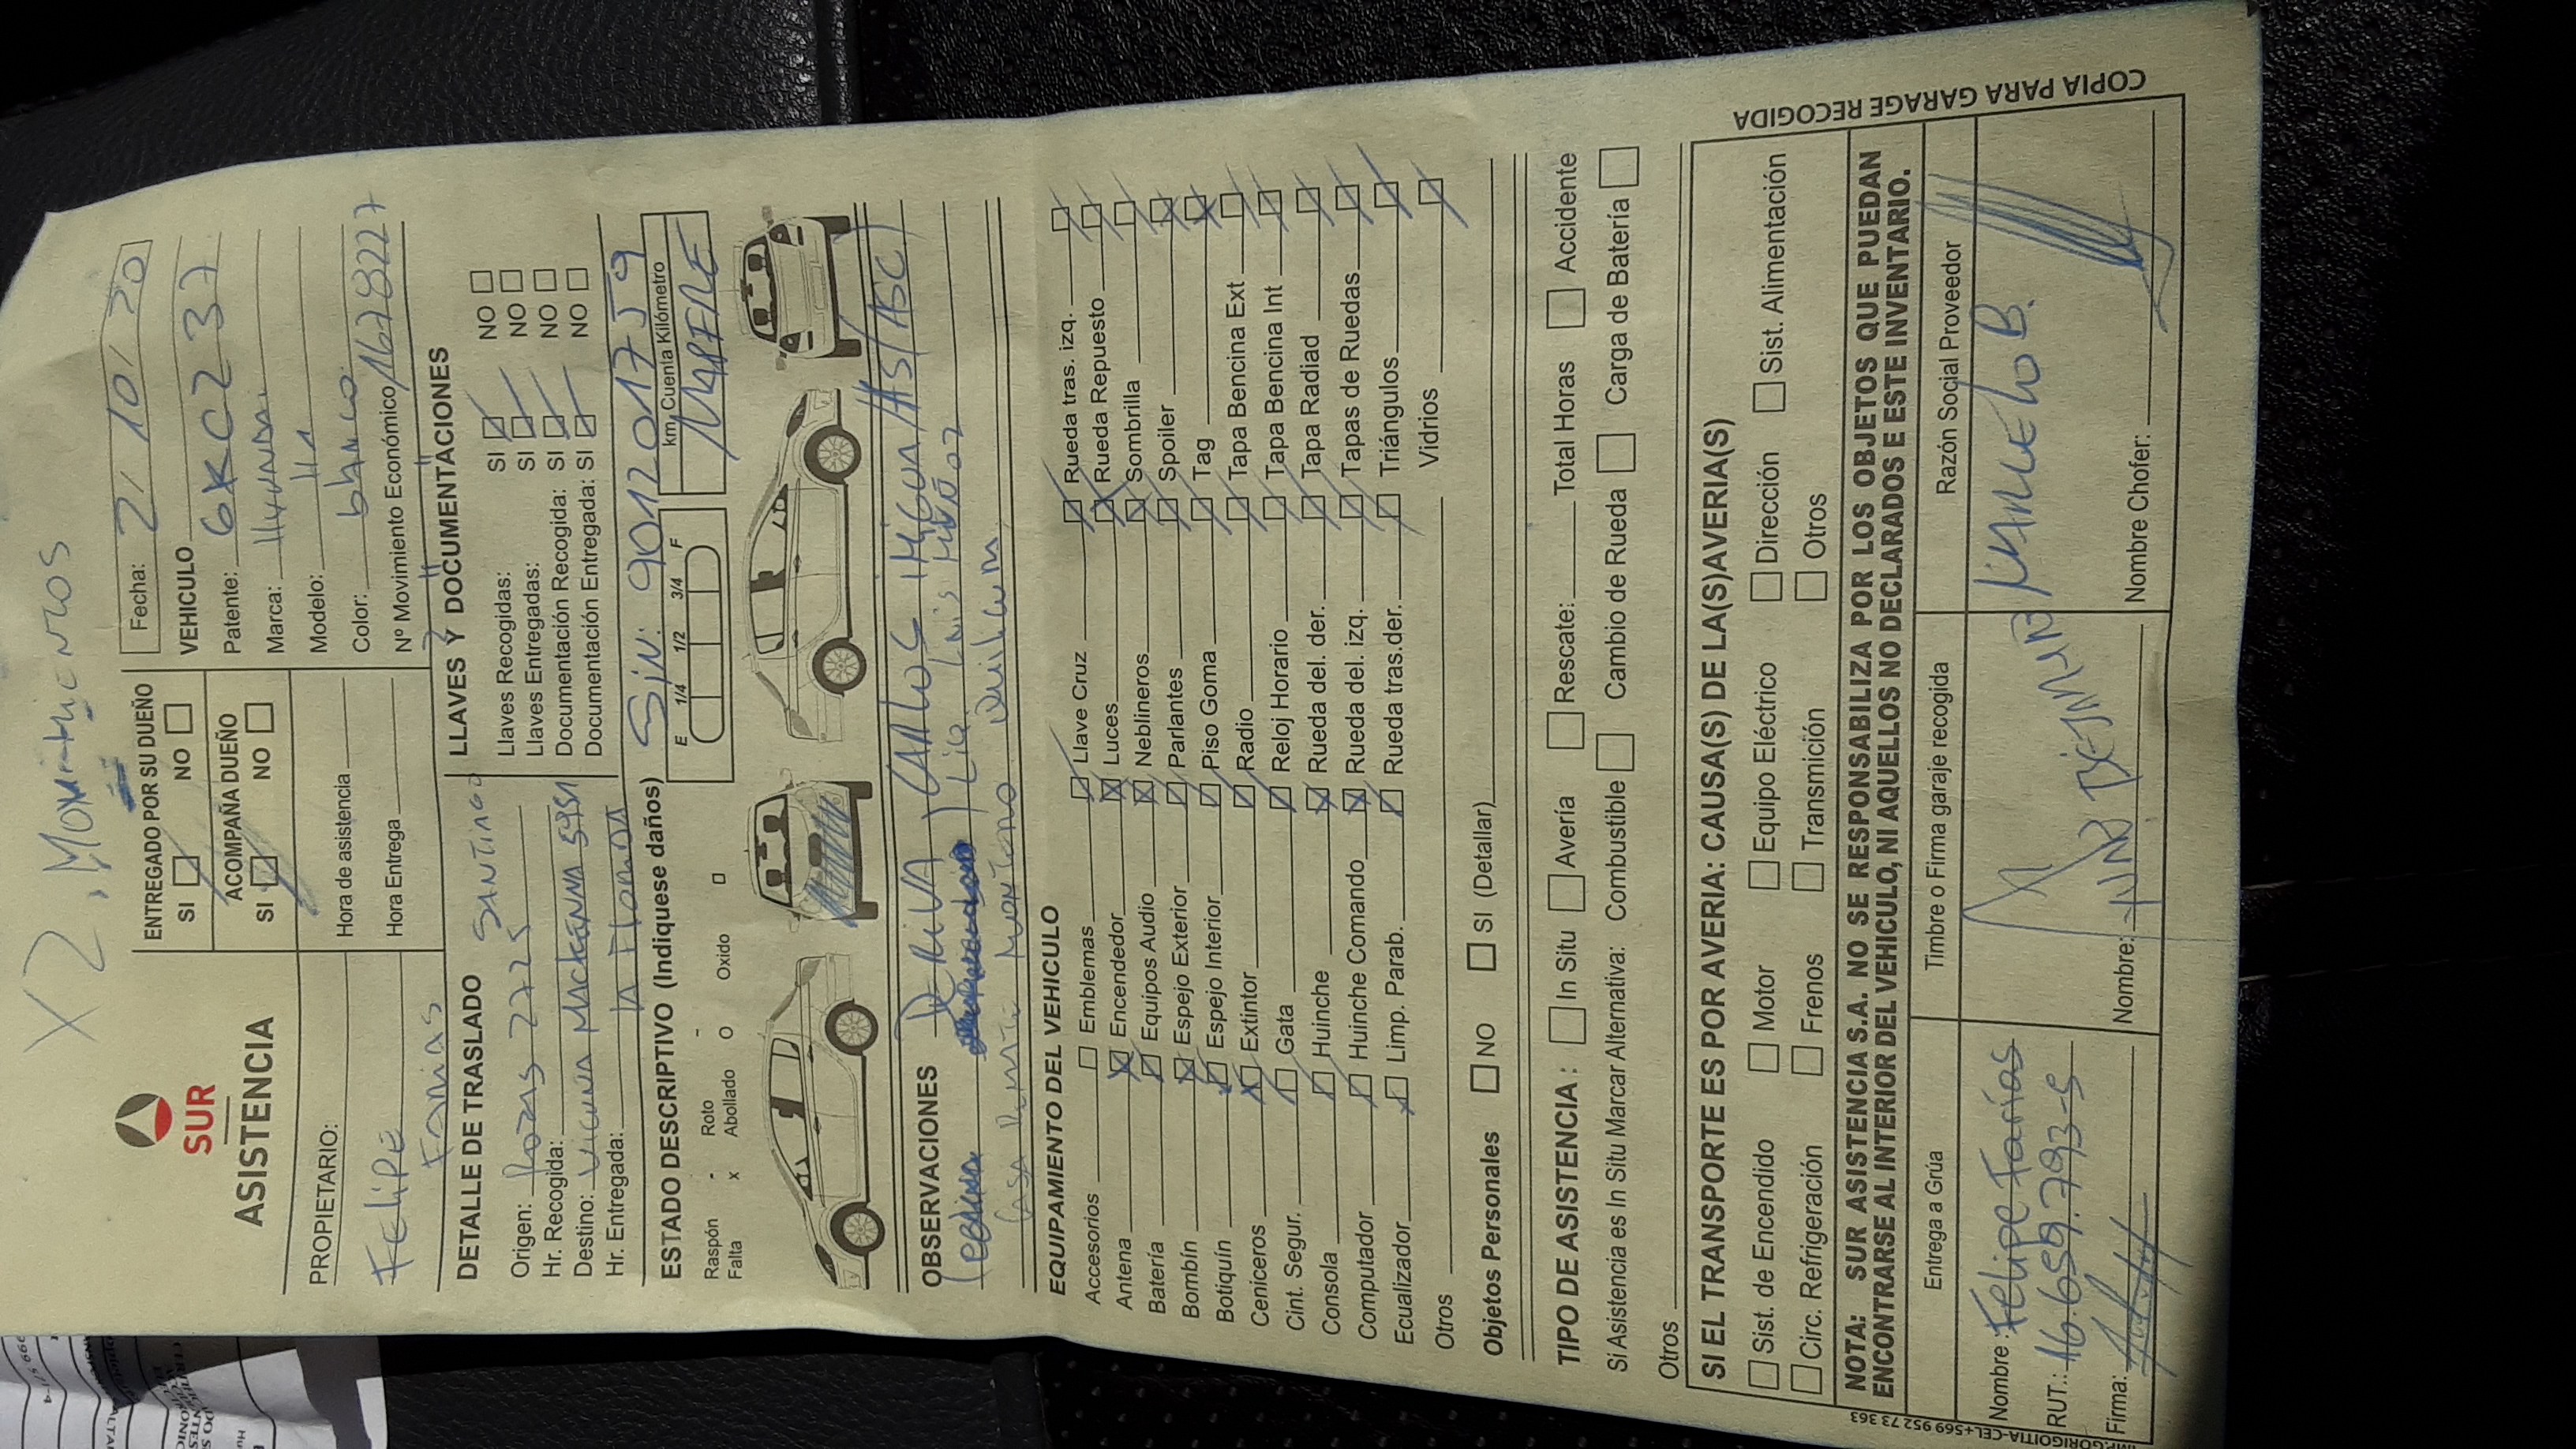 X2. Movimientos
SUR
ASISTENCIA
ENTREGADO POR SU DUEÑO
SI NO
ACOMPAÑA DUEÑO
SI NO
Fecha: 2/ 10/ 20
VEHICULO
Patente: GKCZ37
Marca: Hyundai
Modelo: H1
Color: blanco
Nº Movimiento Económico 16278227
PROPIETARIO:
Felipe
Farias
Hora de asistencia
Hora Entrega
DETALLE DE TRASLADO
Origen: Rozas 2725 Santiago
Hr. Recogida:
Destino: Vicuña Mackenna 5951
Hr. Entregada: la Florida
LLAVES Y DOCUMENTACIONES
Llaves Recogidas: SI NO
Llaves Entregadas: SI NO
Documentación Recogida: SI NO
Documentación Entregada: SI NO
ESTADO DESCRIPTIVO (Indiquese daños) SIN: 901201759
E 1/4 1/2 3/4 F km. Cuenta Kilómetro
MAPFRE
Raspón - Roto - Oxido
Falta x Abollado O
OBSERVACIONES Deriva / Carlos
EQUIPAMIENTO DEL VEHICULO
Accesorios Emblemas Llave Cruz Rueda tras. izq.
Antena Encendedor Luces Rueda Repuesto
Batería Equipos Audio Neblineros Sombrilla
Bombín Espejo Exterior Parlantes Spoiler
Botiquín Espejo Interior Piso Goma Tag
Ceniceros Extintor Radio Tapa Bencina Ext
Cint. Segur. Gata Reloj Horario Tapa Bencina Int
Consola Huinche Rueda del. der. Tapa Radiad
Computador Huinche Comando Rueda del. izq. Tapas de Ruedas
Ecualizador Limp. Parab. Rueda tras.der. Triángulos
Otros Vidrios
Objetos Personales NO SI (Detallar)
TIPO DE ASISTENCIA : In Situ Avería Rescate: Total Horas Accidente
Si Asistencia es In Situ Marcar Alternativa: Combustible Cambio de Rueda Carga de Batería
Otros
SI EL TRANSPORTE ES POR AVERIA: CAUSA(S) DE LA(S)AVERIA(S)
Sist. de Encendido Motor Equipo Eléctrico Dirección Sist. Alimentación
Circ. Refrigeración Frenos Transmición Otros
NOTA: SUR ASISTENCIA S.A. NO SE RESPONSABILIZA POR LOS OBJETOS QUE PUEDAN
ENCONTRARSE AL INTERIOR DEL VEHICULO, NI AQUELLOS NO DECLARADOS E ESTE INVENTARIO.
Entrega a Grúa Timbre o Firma garaje recogida Razón Social Proveedor
Nombre : Felipe Farías
RUT.: 16.659.793-5
Firma:
Nombre:
Marcelo B.
Nombre Chofer:
COPIA PARA GARAGE RECOGIDA
IMP.GORIGOITIA-CEL+569 952 73 363